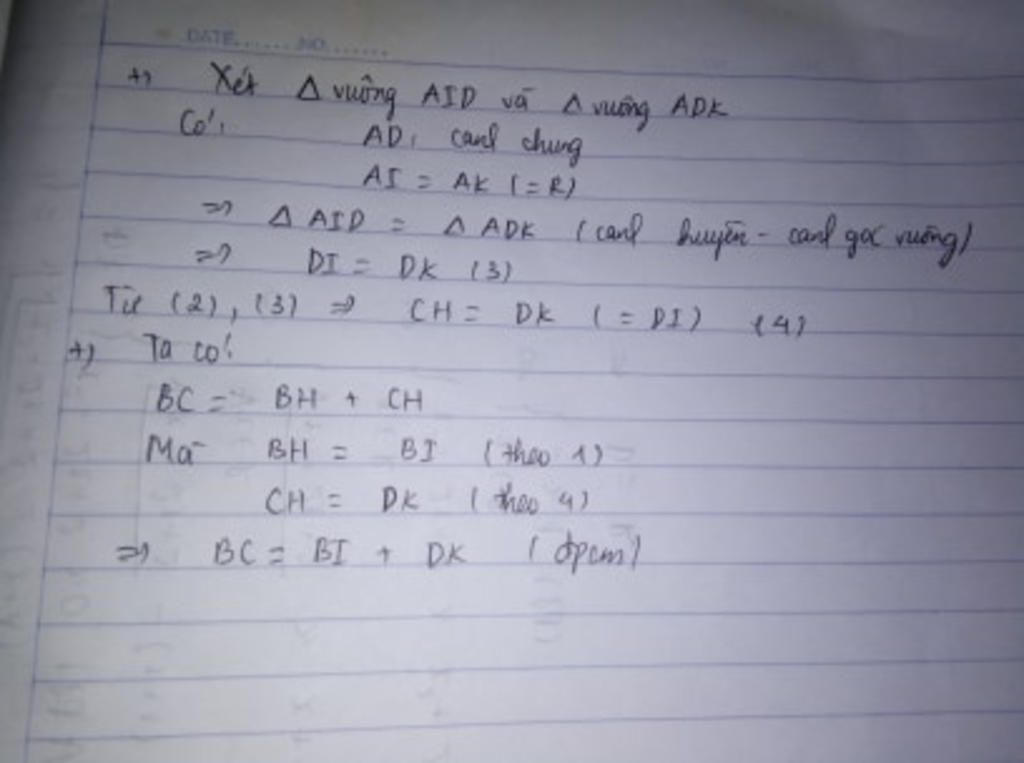 DATE...... NO.......
+) Xét Δ vuông AID và Δ vuông ADK
Có: AD: cạnh chung
AI = AK (=R)
=> Δ AID = Δ ADK (cạnh huyền - cạnh góc vuông)
=> DI = DK (3)
Từ (2), (3) => CH = DK (= DI) (4)
+) Ta có:
BC = BH + CH
Mà BH = BI (theo 1)
CH = DK (theo 4)
=> BC = BI + DK (đpcm)